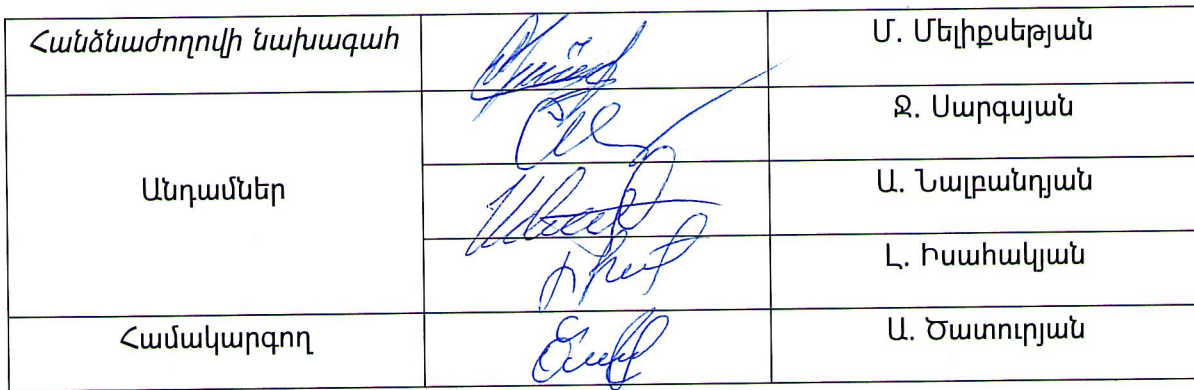 Հանձնաժողովի նախագահ
Մ. Մելիքսեթյան
Անդամներ
Ջ. Սարգսյան
Ա. Նալբանդյան
Լ. Իսահակյան
Համակարգող
Ա. Ծատուրյան